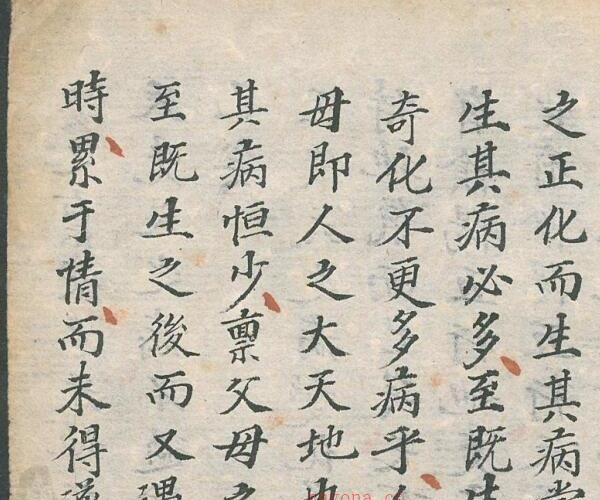 之正化而生其病
生其病必多至既生
奇化不更多病乎
母即人之大天地
其病恒少禀父母之
至既生之後而又
時累于情而未得